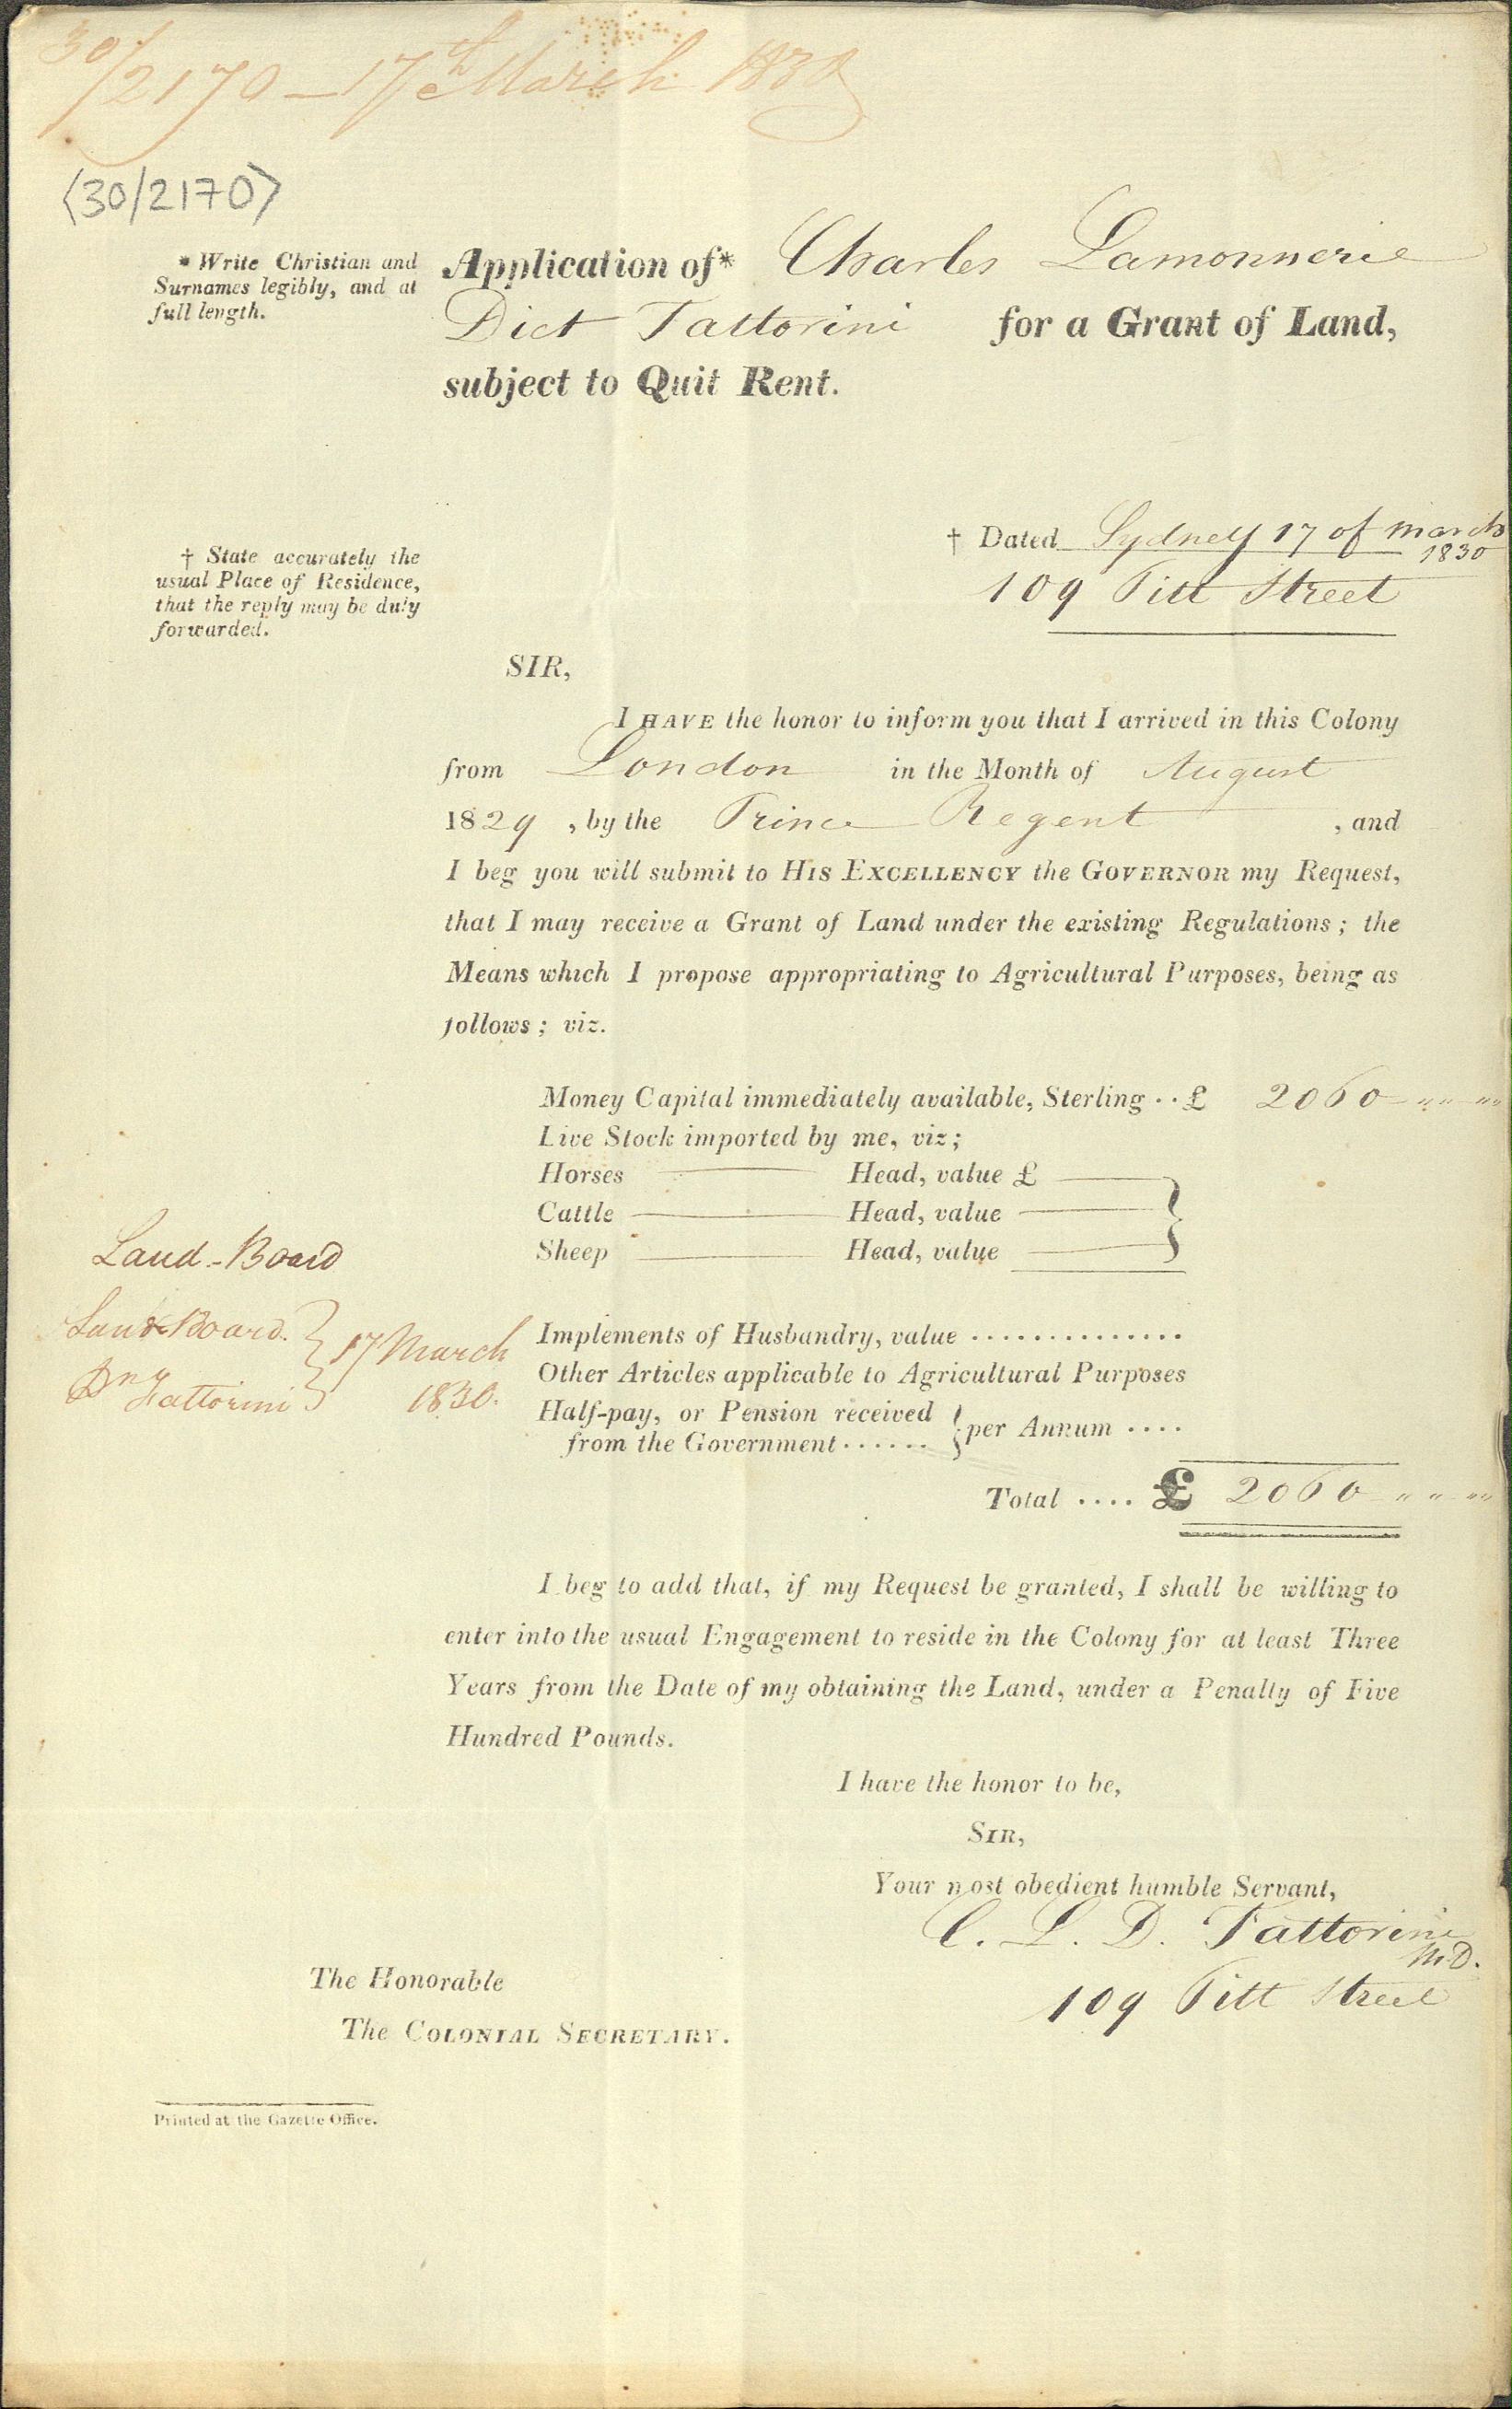 30/2170 – 17th March 1830
<30/2170>
* Write Christian and
Surnames legibly, and at
full length.
Application of* Charles Lamonnerie
Dict Fattorini for a Grant of Land,
subject to Quit Rent.
† State accurately the
usual Place of Residence,
that the reply may be duly
forwarded.
† Dated Sydney 17 of march
1830
109 Pitt Street
SIR,
I HAVE the honor to inform you that I arrived in this Colony
from London in the Month of August
1829 , by the Prince Regent , and
I beg you will submit to HIS EXCELLENCY the GOVERNOR my Request,
that I may receive a Grant of Land under the existing Regulations ; the
Means which I propose appropriating to Agricultural Purposes, being as
follows ; viz.
Money Capital immediately available, Sterling .. £ 2060 – „ „ – „
Live Stock imported by me, viz ;
Horses —— Head, value £ ——
Cattle —— Head, value ——
Sheep —— Head, value ——
Land-Board
Land Board. } 17 March
Fattorini } 1830.
Implements of Husbandry, value ..............
Other Articles applicable to Agricultural Purposes
Half-pay, or Pension received
from the Government ...... } per Annum ....
Total .... £ 2060 – „ „ „
I beg to add that, if my Request be granted, I shall be willing to
enter into the usual Engagement to reside in the Colony for at least Three
Years from the Date of my obtaining the Land, under a Penalty of Five
Hundred Pounds.
I have the honor to be,
SIR,
Your most obedient humble Servant,
C. L. D. Fattorini
M.D.
109 Pitt Street
The Honorable
The COLONIAL SECRETARY.
Printed at the Gazette Office.